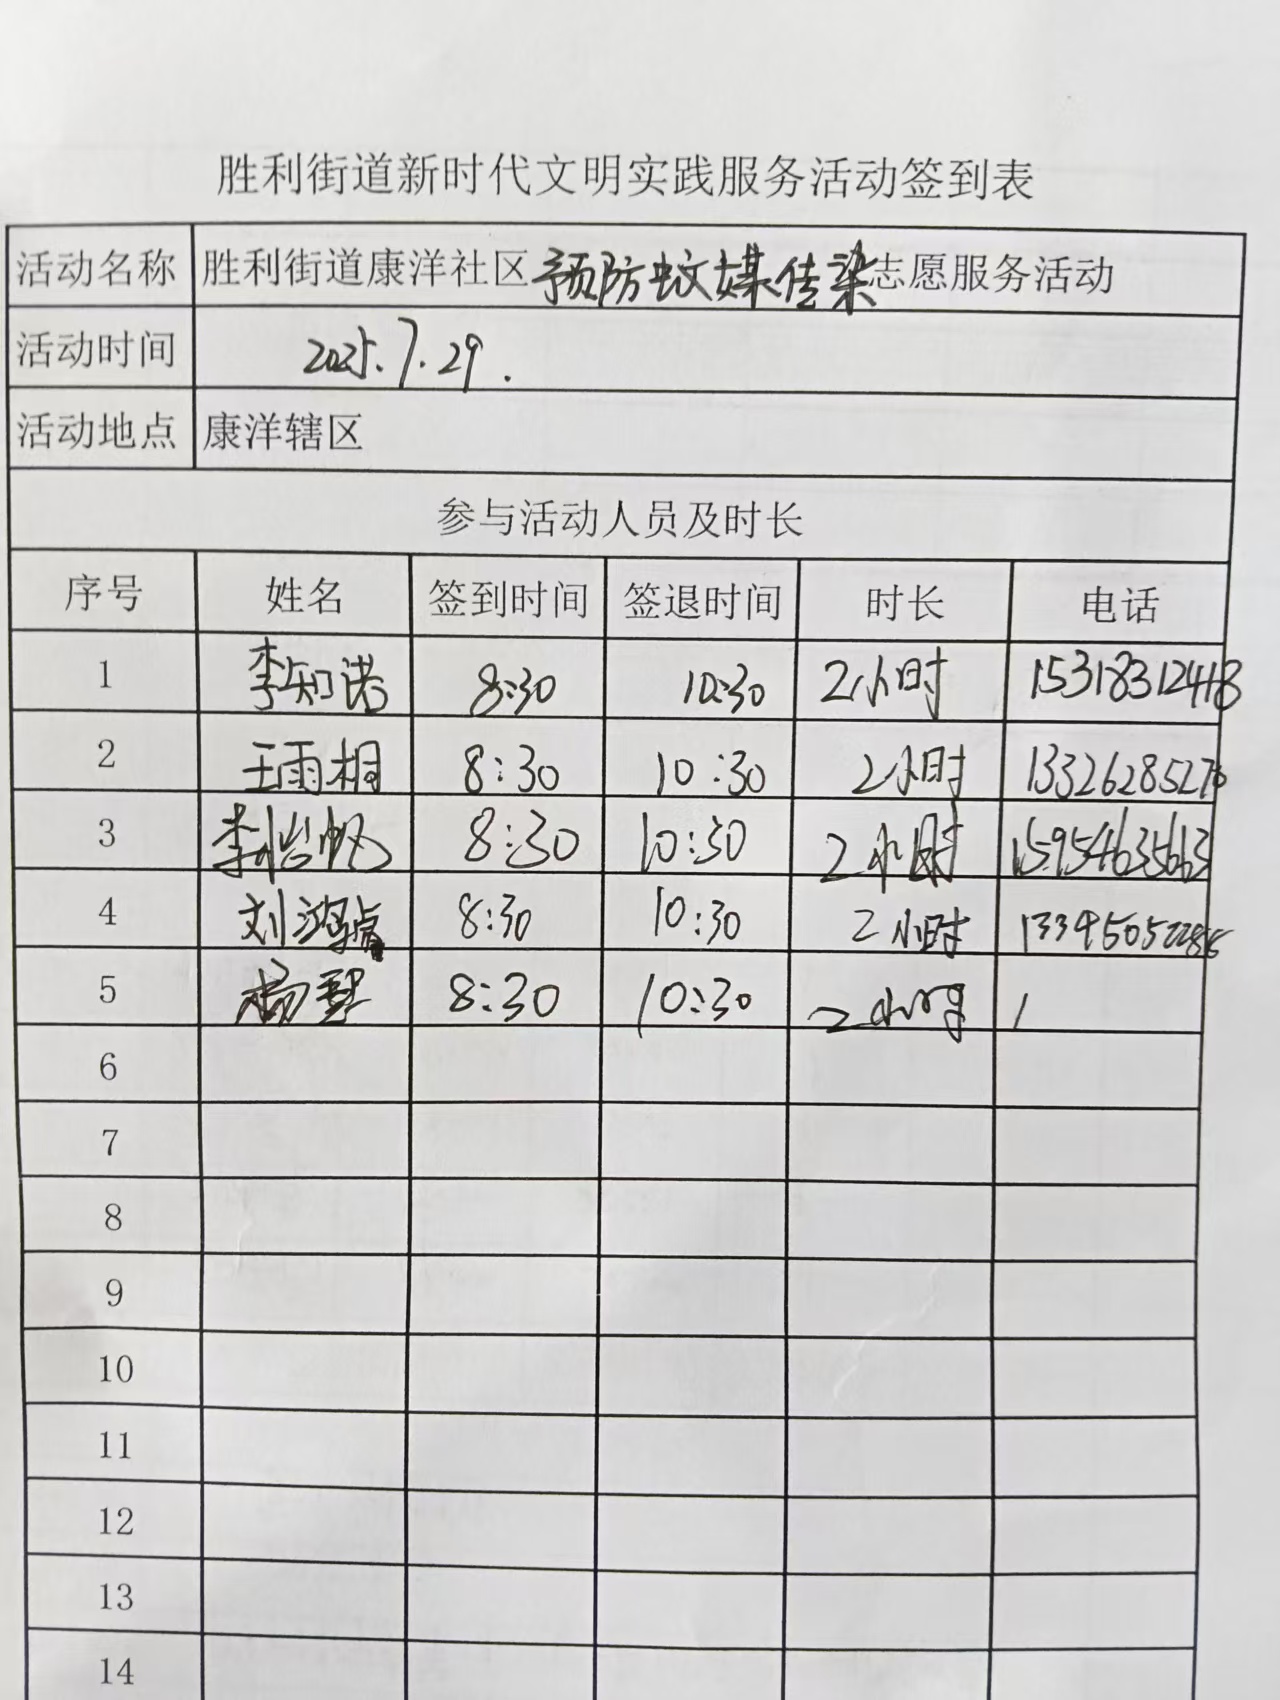 胜利街道新时代文明实践服务活动签到表
活动名称 胜利街道康洋社区预防蚊媒传染志愿服务活动
活动时间 2025.7.29.
活动地点 康洋辖区
参与活动人员及时长
序号 姓名 签到时间 签退时间 时长 电话
1 李知诺 8:30 10:30 2小时
2 王雨桐 8:30 10:30 2小时 13326285276
3 李怡帆 8:30 10:30 2小时 15954635663
4 刘鸿 8:30 10:30 2小时
5 杨 8:30 10:30 2小时 1
6
7
8
9
10
11
12
13
14